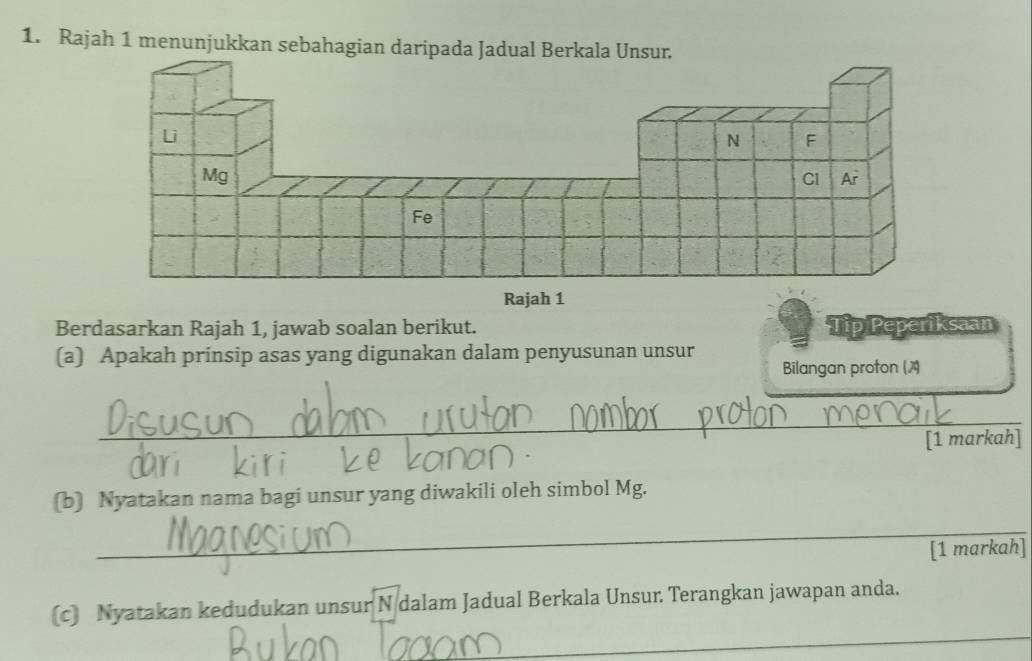 1. Rajah 1 menunjukkan sebahagian daripada Jadual Berkala Unsur.
Li N F
Mg Cl Ar
Fe
Rajah 1
Berdasarkan Rajah 1, jawab soalan berikut.
Tip Peperiksaan
(a) Apakah prinsip asas yang digunakan dalam penyusunan unsur
Bilangan proton
Disusun dalam urutan nombor proton menaik
[1 markah]
dari kiri ke kanan.
(b) Nyatakan nama bagi unsur yang diwakili oleh simbol Mg.
Magnesium
[1 markah]
(c) Nyatakan kedudukan unsur N dalam Jadual Berkala Unsur. Terangkan jawapan anda.
Bukan logam